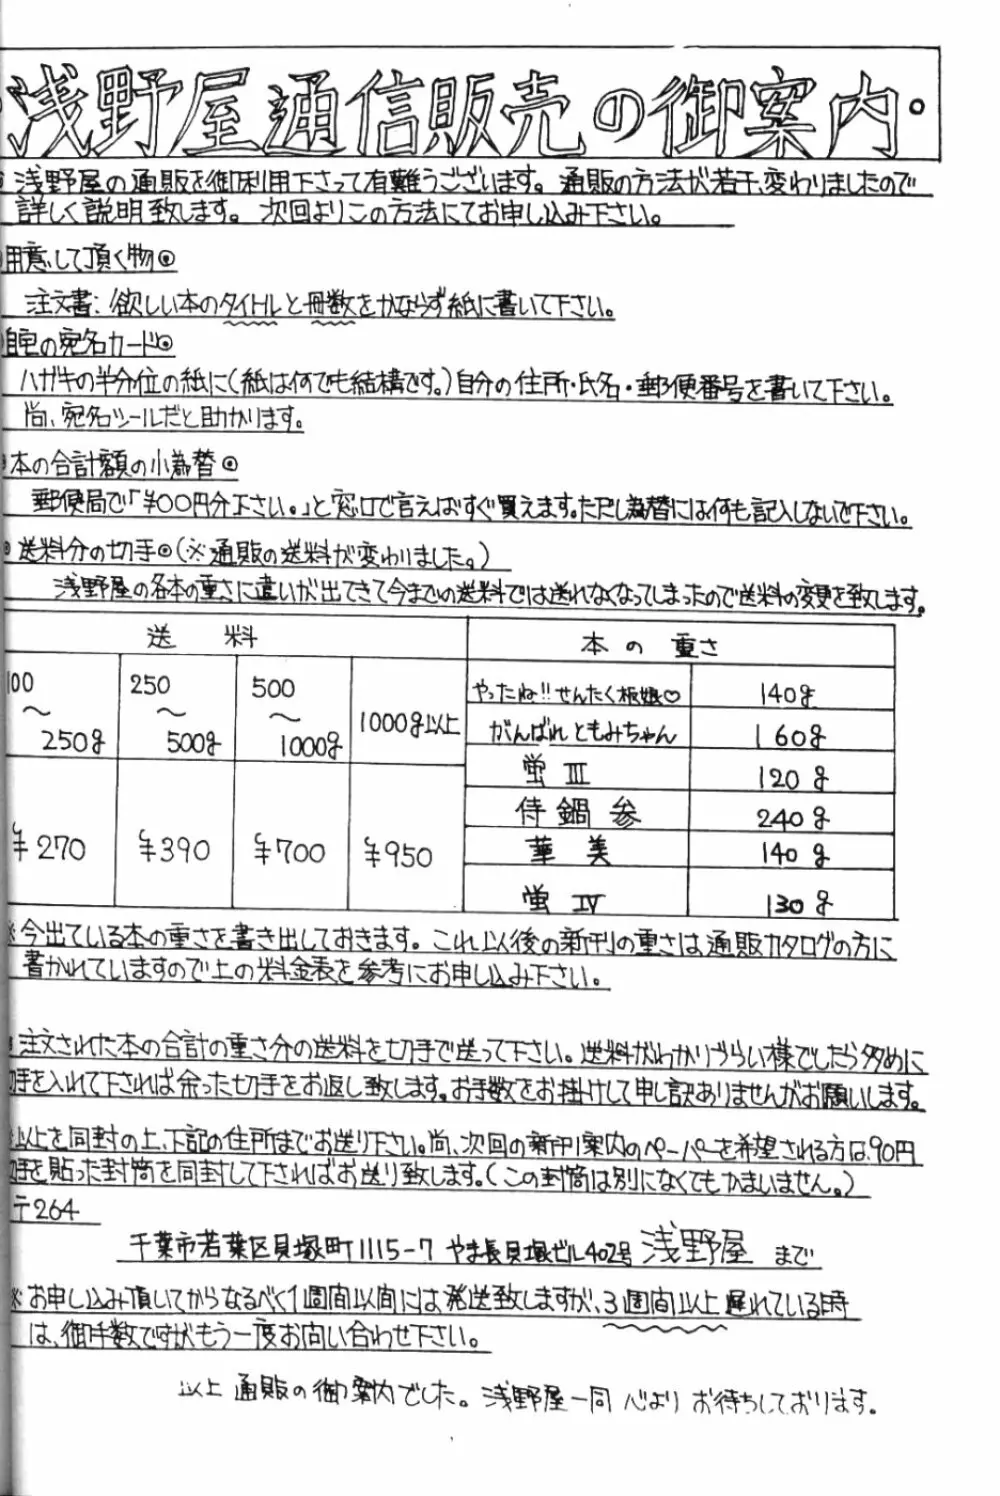 浅野屋通信販売の御案内・
浅野屋の通販を御利用下さって有難うございます。通販の方法が若干、変わりましたので
詳しく説明致します。次回よりこの方法にてお申し込み下さい。
用意して頂く物◎
注文書:欲しい本のタイトルと冊数をかならず紙に書いて下さい。
自宅の宛名カード◎
ハガキの半分位の紙に(紙は何でも結構です。)自分の住所・氏名・郵便番号を書いて下さい。
尚、宛名シールだと助かります。
本の合計額の小為替◎
郵便局で「¥〇〇円分下さい。」と窓口で言えばすぐ買えます。ただし為替には何も記入しないで下さい。
◎送料分の切手◎(※通販の送料が変わりました。)
浅野屋の各本の重さに違いが出てきて今までの送料では送れなくなってしまったので送料の変更を致します。
送料
100〜250g 250〜500g 500〜1000g 1000g以上
¥270 ¥390 ¥700 ¥950
本の重さ
やったね!!せんたく板娘♡ 140g
がんばれともみちゃん 160g
蛍III 120g
侍鍋参 240g
華美 140g
蛍IV 130g
※今出ている本の重さを書き出しておきます。これ以後の新刊の重さは通販カタログの方に
書かれていますので上の料金表を参考にお申し込み下さい。
注文された本の合計の重さ分の送料を切手で送って下さい。送料がわかりづらい様でしたら多めに
切手を入れて下されば余った切手をお返し致します。お手数をお掛けして申し訳ありませんがお願いします。
以上を同封の上、下記の住所までお送り下さい。尚、次回の新刊案内のペーパーを希望される方は90円
切手を貼った封筒を同封して下さればお送り致します。(この封筒は別になくてもかまいません。)
〒264
千葉市若葉区貝塚町1115-7 やま長貝塚ビル402号 浅野屋 まで
※お申し込み頂いてからなるべく1週間以内には発送致しますが、3週間以上遅れている時
は、御手数ですがもう一度お問い合わせ下さい。
以上通販の御案内でした。浅野屋一同 心よりお待ちしております。